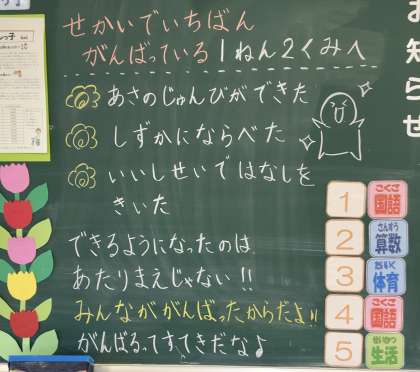 せかいでいちばん
がんばっている1ねん2くみへ
あさのじゅんびができた
しずかにならべた
いいしせいではなしを
きいた
できるようになったのは
あたりまえじゃない!!
みんなががんばったからだよ!!
がんばるってすてきだな♪
お知らせ
1 こくご 国語
2 さんすう 算数
3 たいいく 体育
4 こくご 国語
5 せいかつ 生活